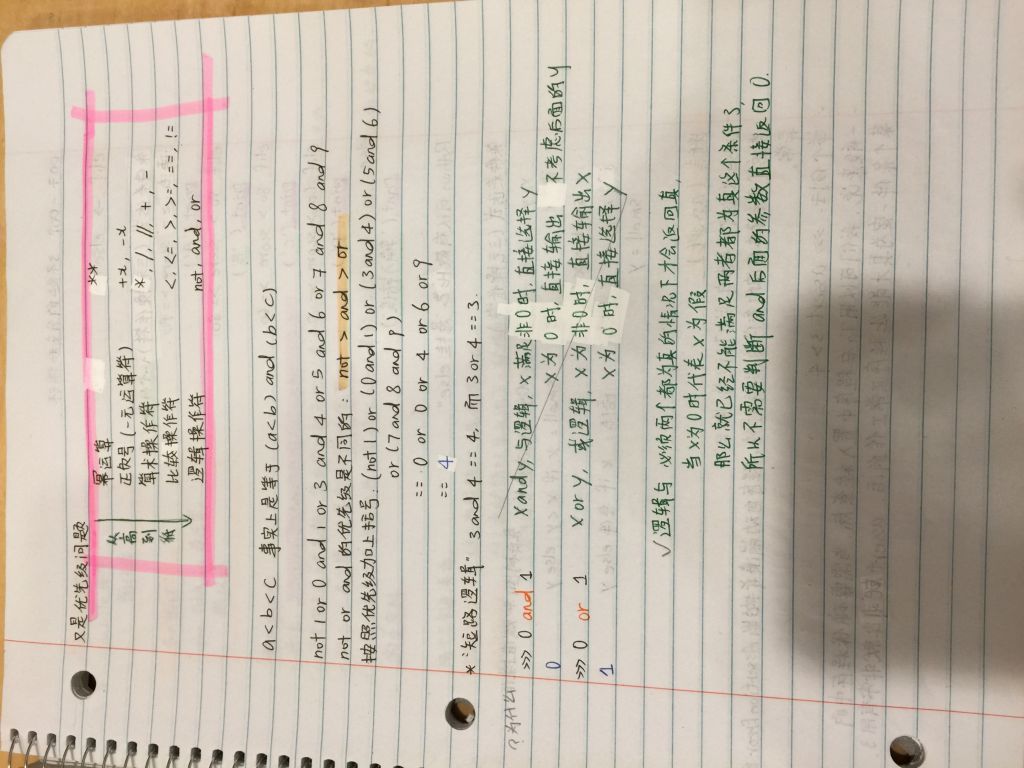 又是优先级问题
从高到低
幂运算 **
正负号(一元运算符) +x, -x
算术操作符 *, /, //, +, -
比较操作符 <, <=, >, >=, ==, !=
逻辑操作符 not, and, or
a < b < c 事实上是等于 (a < b) and (b < c)
not 1 or 0 and 1 or 3 and 4 or 5 and 6 or 7 and 8 and 9
not or and 的优先级是不同的: not > and > or
按照优先级加上括号: (not 1) or (0 and 1) or (3 and 4) or (5 and 6)
or (7 and 8 and 9)
== 0 or 0 or 4 or 6 or 9
== 4
* "短路逻辑" 3 and 4 == 4, 而 3 or 4 == 3.
?为什么
>>> 0 and 1 X and y, 与逻辑, x 满足非0时, 直接选择 y
0 x 为 0 时, 直接输出 不考虑后面的 y
>>> 0 or 1 x or y, 或逻辑, x 为非0时, 直接输出 x
1 x 为 0 时, 直接选择 y
✓逻辑与 必须两个都为真的情况下才会返回真,
当 x 为 0 时代表 x 为假
那么就已经不能满足两者都为真这个条件了,
所以不需要判断 and 后面的参数直接返回 0.